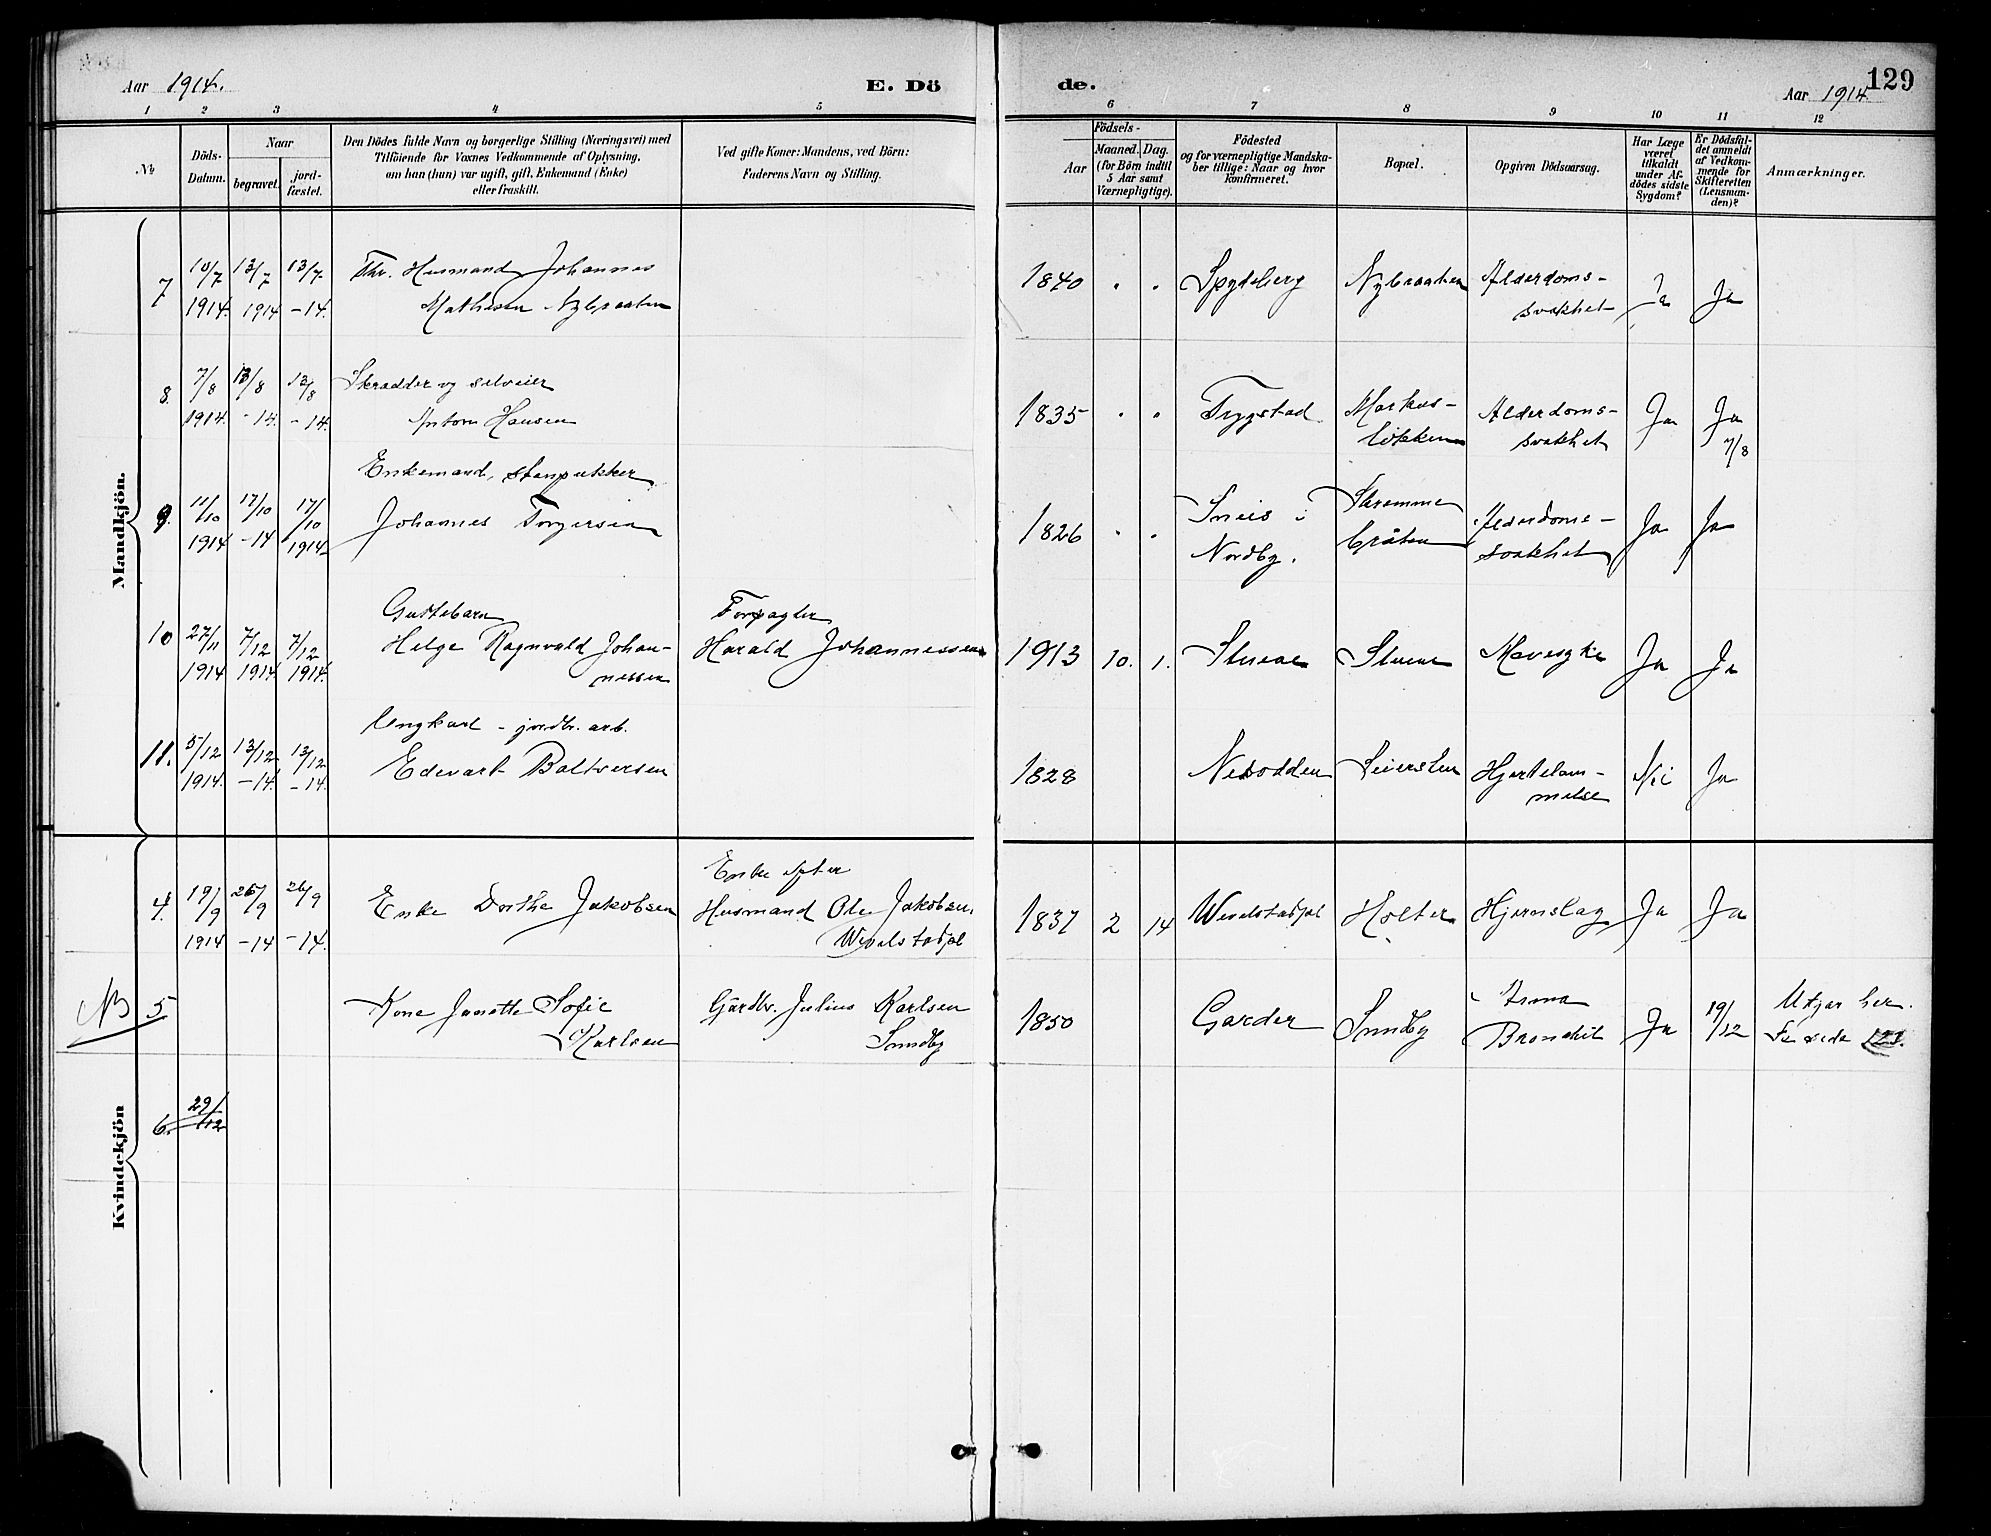 Aar 1914.
E. Dö
de.
Aar 1914
129
1 2 3 4 5 6 7 8 9 10 11 12
No
Döds-Datum.
Naar
begravet.
jord-fæstet.
Den Dödes fulde Navn og borgerlige Stilling (Næringsvei) med
Tilföiende for Voxnes Vedkommende af Oplysning,
om han (hun) var ugift, gift, Enkemand (Enke)
eller fraskilt.
Ved gifte Koner: Mandens, ved Börn:
Faderens Navn og Stilling.
Födsels-
Aar
Maaned. Dag.
(for Börn indtil
5 Aar samt
Værnepligtige).
Födested
og for værnepligtige Mandska-
ber tillige: Naar og hvor
konfirmeret.
Bopæl.
Opgiven Dödsaarsag.
Har Læge
været
tilkaldt
under Af-
dödes sidste
Sygdom?
Er Dödsfal-
det anmeldt
af Vedkom-
mende for
Skifteretten
(Lensman-
den)?
Anmærkninger.
Mandkjön.
7 10/7 13/7 13/7 Fhv. Husmand Johannes 1840 " " Spydeberg Nybraaten Alderdoms- Ja Ja
1914. 1914 -14. Mathisen Nybraaten svakhet
8. 7/8 13/8 13/8 Skrædder og selveier 1835 " " Trygstad Markus- Alderdoms- Ja Ja
1914. -14. -14. Anton Hansen lökken svakhet 7/8
Enkemand, stenpukker
9. 11/10 17/10 17/10 Johannes Torgersen 1826 " " Sneis i Skramme Alderdoms- Ja Ja
1914 -14 1914 Nordby. bråten svakhet
Guttebarn Forpagter
10 27/11 7/12 7/12 Helge Ragnvald Johan- Harald Johannessen 1913 10. 1. Stuene Stuene Mavesyke Ja Ja
1914 1914 1914. nessen
Ungkarl - jordbr. arb.
11. 5/12 13/12 13/12 Edevart Boltversen 1828 Nesodden Seiersten Hjertelam- Nei Ja
1914. -14. -14. melse
Kvindekjön
Enke efter
4. 19/9 26/9 26/9 Enke Dorthe Jakobsen Husmand Ole Jakobsen 1837 2 14 Wevelstadpl Holter Hjerneslag Ja Ja
1914 -14 -14. Wevelstadpl
NB 5 Kone Janette Sofie Gårdbr. Julius Karlsen 1850 Garder Sundby Asma Ja 19/12 Utgar her.
Karlsen Sundby Bronchit Se side 121.
6. 29/12